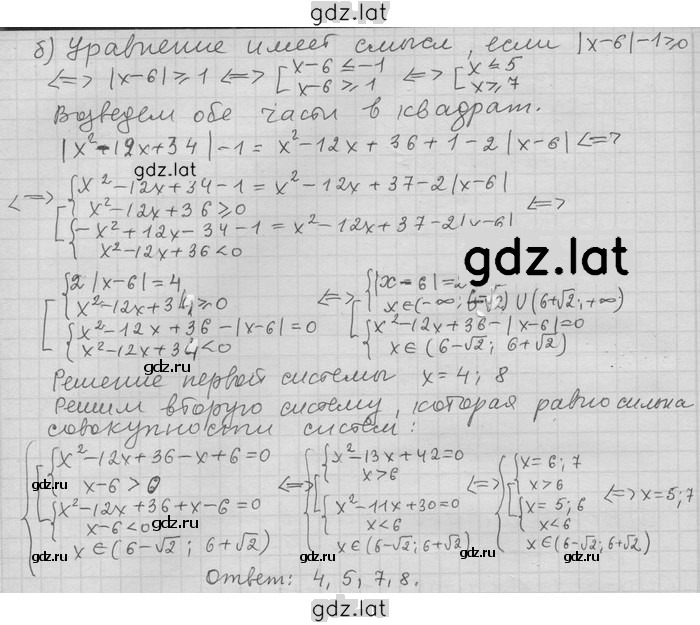 gdz.lat
б) Уравнение имеет смысл, если |x-6|-1≥0
<=> |x-6|≥1 <=> [ x-6≤-1 <=> [ x≤5
x-6≥1 x≥7
Возведем обе части в квадрат.
|x²-12x+34|-1 = x²-12x+36+1-2|x-6| <=>
gdz.lat
<=> [ { x²-12x+34-1 = x²-12x+37-2|x-6|
x²-12x+36≥0 <=>
{ -x²+12x-34-1 = x²-12x+37-2|x-6|
x²-12x+36<0
gdz.lat
[ { 2|x-6|=4 <=> [ { |x-6|=2
x²-12x+34≥0 x∈(-∞; 6-√2) ∪ (6+√2; +∞)
gdz.ru
{ x²-12x+36-|x-6|=0 { x²-12x+36-|x-6|=0
x²-12x+34<0 x∈(6-√2; 6+√2)
gdz.ru
Решение первой системы x=4; 8
Решим вторую систему, которая равносильна
совокупности систем:
{ [ { x²-12x+36-x+6=0 <=> { [ { x²-13x+42=0 <=> { [ { x=6; 7 <=> x=5; 7
x-6>0 x>6 x>6
gdz.ru gdz.ru
{ x²-12x+36+x-6=0 { x²-11x+30=0 { x=5; 6
x-6<0 x<6 x<6
x∈(6-√2; 6+√2) x∈(6-√2; 6+√2) x∈(6-√2; 6+√2)
gdz.ru gdz.ru
Ответ: 4, 5, 7, 8.
gdz.lat